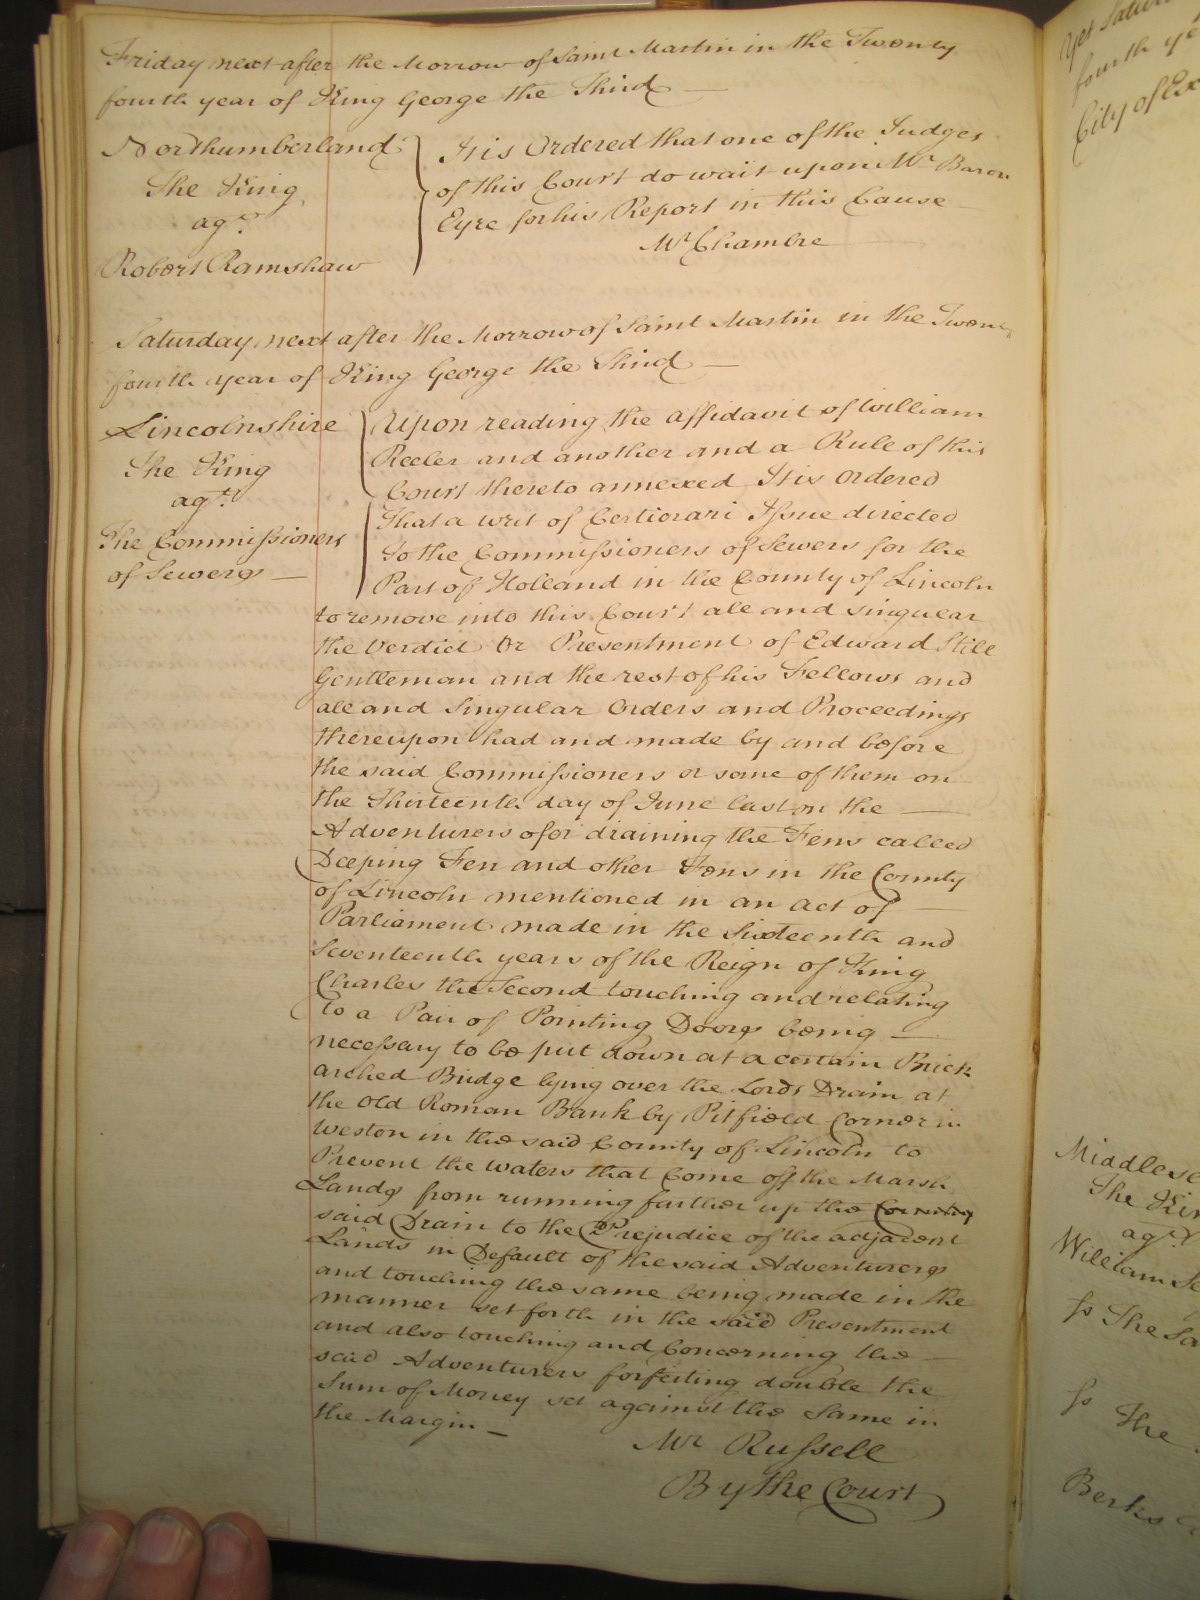 Friday next after the Morrow of Saint Martin in the Twenty
fourth year of King George the Third
Northumberland
The King
agt.
Robert Ramshaw
It is Ordered that one of the Judges
of this Court do wait upon Mr Baron
Eyre for his Report in this Cause
Mr Chambre
Saturday next after the Morrow of Saint Martin in the Twenty
fourth year of King George the Third
Lincolnshire
The King
agt.
The Commissioners
of Sewers
Upon reading the affidavit of William
Reeler and another and a Rule of this
Court thereto annexed It is Ordered
That a writ of Certiorari Issue directed
To the Commissioners of Sewers for the
Part of Holland in the County of Lincoln
to remove into this Court all and singular
the Verdict Or Presentment of Edward Still
Gentleman and the rest of his Fellows and
all and Singular Orders and Proceedings
thereupon had and made by and before
the said Commissioners or some of them on
the Thirteenth day of June last on the
Adventurers of or draining the Fens called
Deeping Fen and other Fens in the County
of Lincoln mentioned in an act of
Parliament made in the Sixteenth and
Seventeenth years of the Reign of King
Charles the Second touching and relating
to a Pair of Pointing Doors being
necessary to be put down at a certain Brick
arched Bridge lying over the Lords Drain at
the Old Roman Bank by Pitfield Corner in
Weston in the said County of Lincoln to
Prevent the waters that Come off the Marsh
Lands from running further up the Country
said Drain to the Prejudice of the adjacent
Lands in Default of the said Adventurers
and touching the same being made in the
manner set forth in the said Presentment
and also touching and Concerning the
said Adventurers forfeiting double the
Sum of Money set against the Same in
the Margin
Mr Russell
By the Court
yet Satur
fourth ye
City of Ex
Middlese
The Kin
agt
William Se
fs The Sa
fs
The
Berks